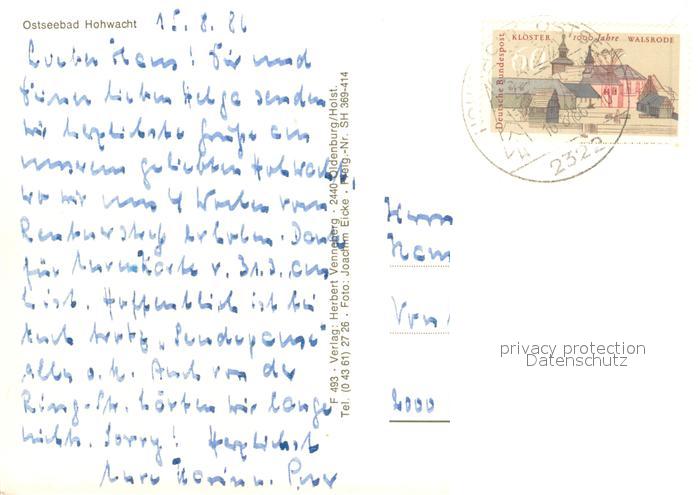 Ostseebad Hohwacht 15.8.86
Lieber Hans! Dir und
Deiner lieben Helga senden
wir herzlichste Grüße aus
unserem geliebten Hohwacht
wo wir uns 4 Wochen vom
erholen. Dank
für Eure Karte v. 31.3. aus
List. Hoffentlich ist bei
Euch trotz „Sendepause"
alles o.k. Auch von der
Ring-Str. hörten wir lange
nichts. Sorry! Herzlichst
Eure
F 493 · Verlag: Herbert Venneberg · 2440 Oldenburg/Holst.
Tel. (0 43 61) 27 26 · Foto: Joachim Eicke · Freig.-Nr. SH 369-414
Deutsche Bundespost
KLOSTER 1000 Jahre WALSRODE
60
2322
Herrn
Ham
Von
2000
privacy protection
Datenschutz